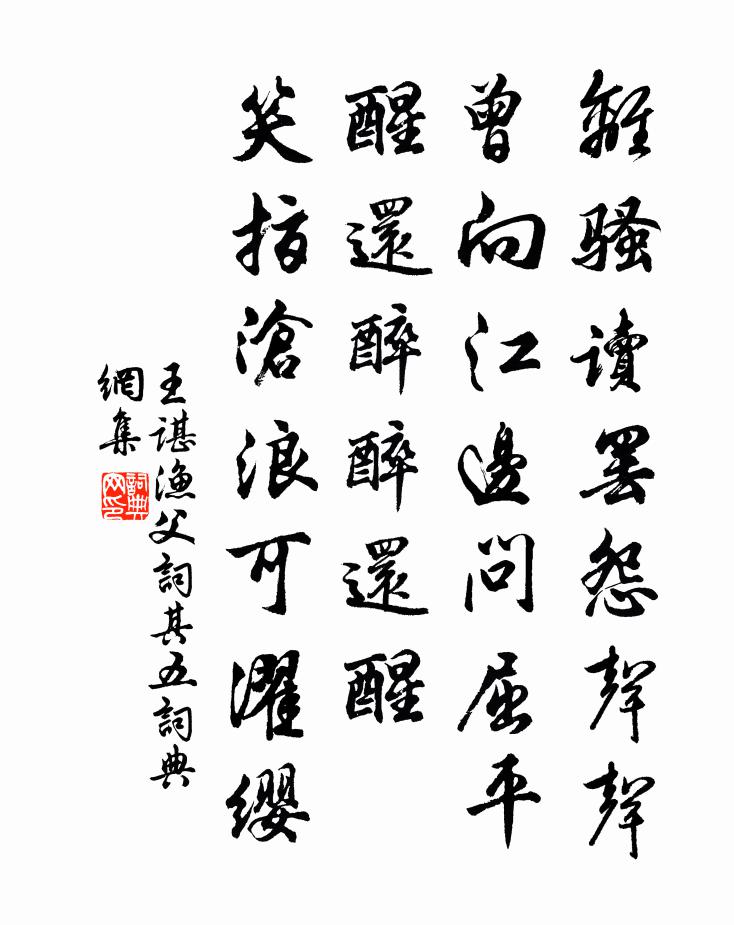 離騷讀罷怨聲聲
曾向江邊問屈平
醒還醉醉還醒
笑指滄浪可濯纓
王諶漁父詞其五詞典
網集
詞典网印